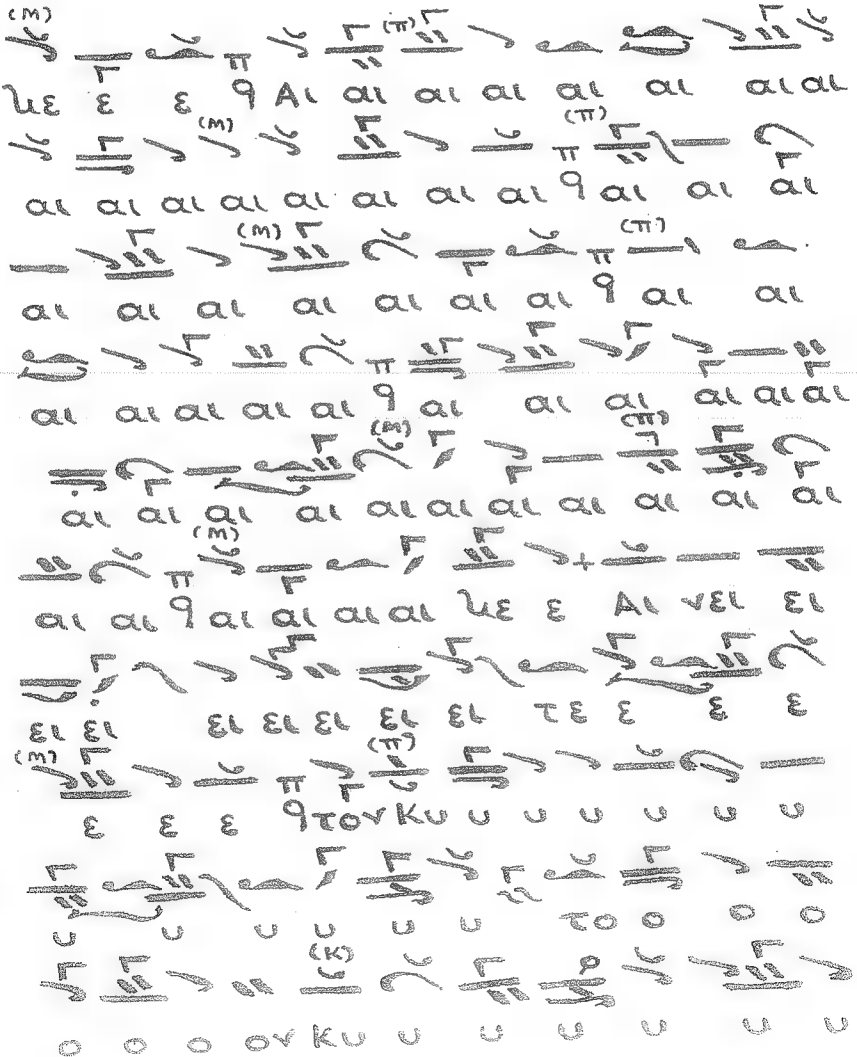 (Μ) π (π)
με ε ε ϥ Αι αι αι αι αι αι αι αι
(Μ) (π) π
αι αι αι αι αι αι αι αι ϥ αι αι αι
(Μ) (π) π
αι αι αι αι αι αι αι ϥ αι αι
π
αι αι αι αι αι ϥ αι αι αι αι αι αι
(Μ) (π)
αι αι αι αι αι αι αι αι αι αι αι
(Μ) π
αι αι ϥ αι αι αι αι με ε Αι νει ει
ει ει ει ει ει ει ει τε ε ε ε
(Μ) (π) π
ε ε ε ϥ τον Κυ υ υ υ υ υ υ
υ υ υ υ υ υ το ο ο ο
(Κ)
ο ο ο ον Κυ υ υ υ υ υ υ